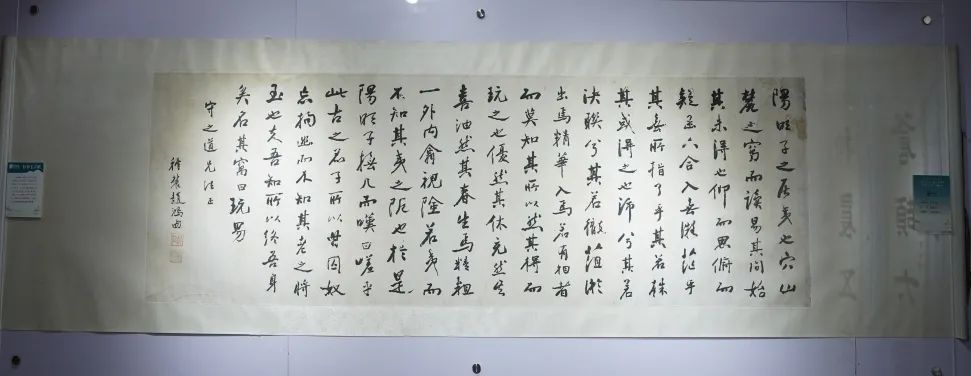 陽明子之居夷也穴山
麓之窩而讀易其間始
其未得也仰而思俯而
疑函六合入無微茫乎
其無所指孑乎其若株
其或得之也沛兮其若
決瞭兮其若徹菹淤
出焉精華入焉若有相者
而莫知其所以然其得而
玩之也優然其休充然其
喜油然其春生焉精粗
一外內翕視險若夷而
不知其夷之阨也於是
陽明子撫几而嘆曰嗟乎
此古之君子所以甘囚奴
忘拘幽而不知其老之將
至也夫吾知所以終吾身
矣名其窩曰玩易
守之道兄法正
趙鴻